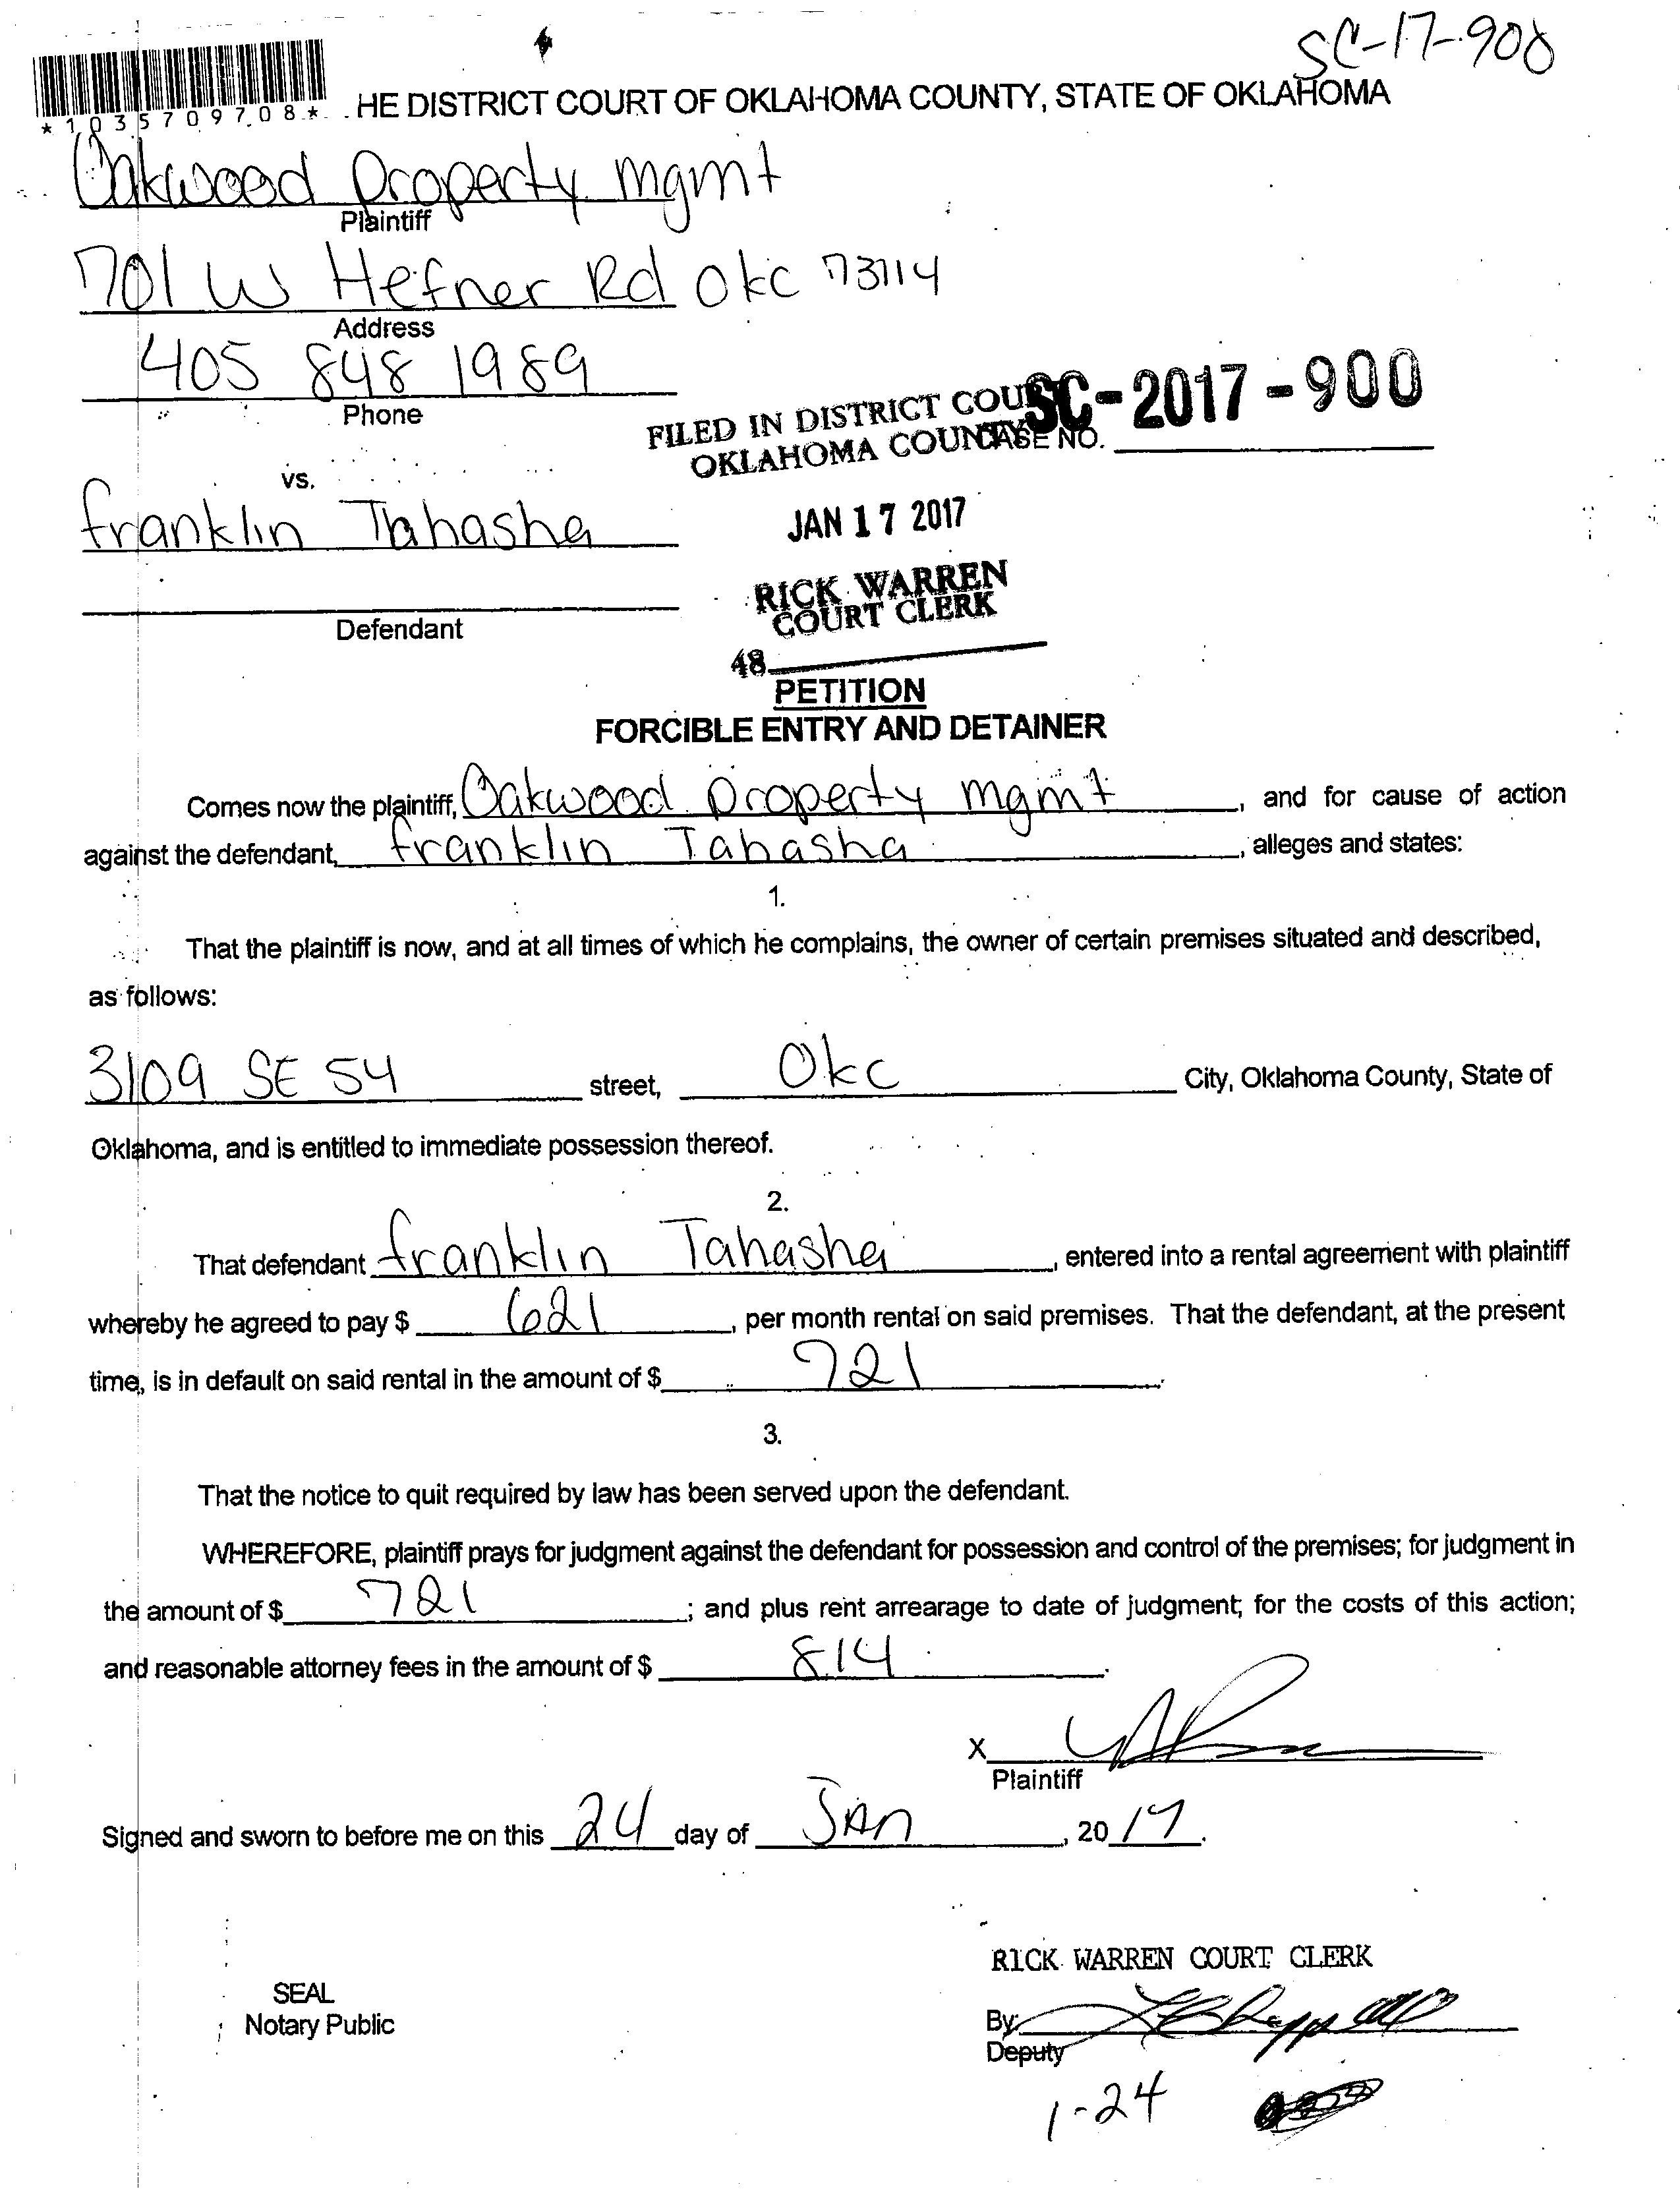 SC-17-900
*1035709708*
HE DISTRICT COURT OF OKLAHOMA COUNTY, STATE OF OKLAHOMA
Oakwood Property mgmt
Plaintiff
701 W Hefner Rd Okc 73114
Address
405 848 1989
Phone
FILED IN DISTRICT COURT
OKLAHOMA COUNTY
SC-2017-900
CASE NO.
vs.
franklin Tahasha
JAN 17 2017
RICK WARREN
COURT CLERK
Defendant
48
PETITION
FORCIBLE ENTRY AND DETAINER
Comes now the plaintiff, Oakwood Property mgmt, and for cause of action
against the defendant, franklin Tahasha, alleges and states:
1.
That the plaintiff is now, and at all times of which he complains, the owner of certain premises situated and described,
as follows:
3109 SE 54 street, Okc City, Oklahoma County, State of
Oklahoma, and is entitled to immediate possession thereof.
2.
That defendant franklin Tahasha, entered into a rental agreement with plaintiff
whereby he agreed to pay $ 621, per month rental on said premises. That the defendant, at the present
time, is in default on said rental in the amount of $ 721.
3.
That the notice to quit required by law has been served upon the defendant.
WHEREFORE, plaintiff prays for judgment against the defendant for possession and control of the premises; for judgment in
the amount of $ 721; and plus rent arrearage to date of judgment; for the costs of this action;
and reasonable attorney fees in the amount of $ 814.
X
Plaintiff
Signed and sworn to before me on this 24 day of JAn, 20 17.
RICK WARREN COURT CLERK
SEAL
Notary Public
By:
Deputy
1-24